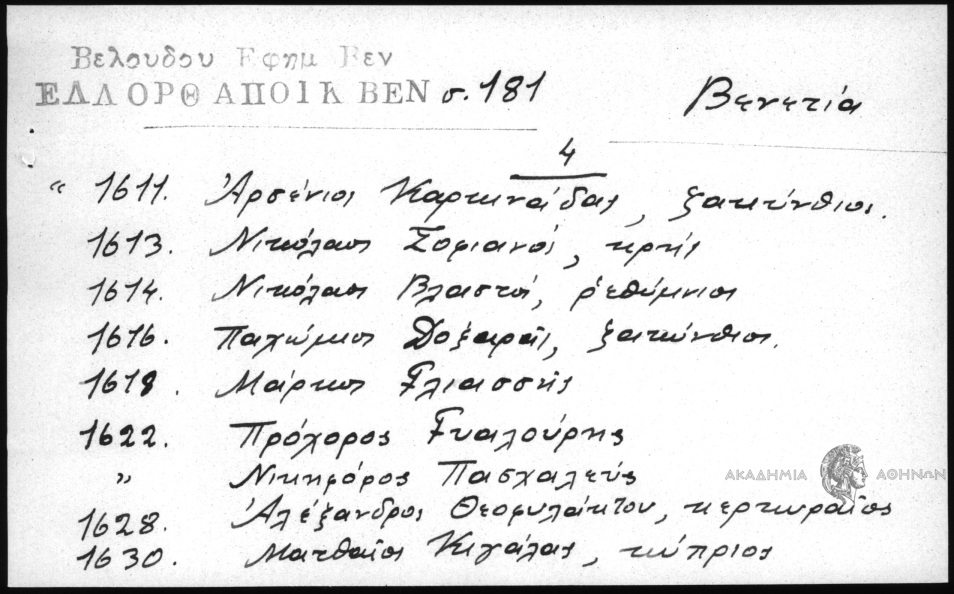 Βελουδου Εφημ Βεν
ΕΛΛ ΟΡΘ ΑΠΟΙΚ ΒΕΝ σ. 181 Βενετία
4
“ 1611. Ἀρσένιος Καρτινάδας, ζακύνθιος.
1613. Νικόλαος Σοφιανός, κρής
1614. Νικόλαος Βλαστός, ῥεθύμνιος
1616. Παχώμιος Δοξαράς, ζακύνθιος.
1618. Μάρκος
1622. Πρόχορος
„ Νικηφόρος Πασχαλεύς
1628. Ἀλέξανδρος Θεοφυλάκτου, κερκυραῖος
1630. Ματθαῖος Κιγάλας, κύπριος
ΑΚΑΔΗΜΙΑ ΑΘΗΝΩΝ